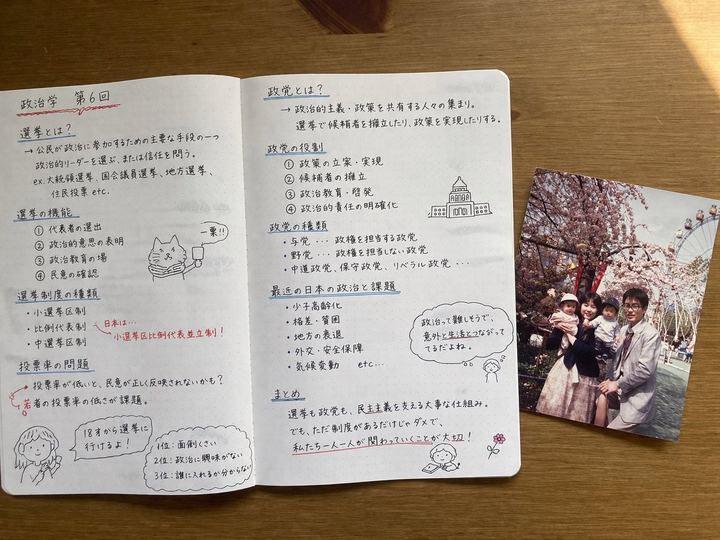 政治学 第6回
選挙とは?
→ 公民が政治に参加するための主要な手段の一つ
政治的リーダーを選ぶ、または信任を問う。
ex.大統領選挙、国会議員選挙、地方選挙、
住民投票 etc.
選挙の機能
① 代表者の選出
② 政治的意思の表明
③ 政治教育の場
④ 民意の確認
一票!!
選挙制度の種類
・小選挙区制
・比例代表制
・中選挙区制
日本は…
小選挙区比例代表並立制!
投票率の問題
・投票率が低いと、民意が正しく反映されないかも?
→ 若者の投票率の低さが課題。
18才から選挙に
行けるよ!
1位:面倒くさい
2位:政治に興味がない
3位:誰に入れるか分からない
政党とは?
→ 政治的主義・政策を共有する人々の集まり。
選挙で候補者を擁立したり、政策を実現したりする。
政党の役割
① 政策の立案・実現
② 候補者の擁立
③ 政治教育・啓発
④ 政治的責任の明確化
政党の種類
・与党 … 政権を担当する政党
・野党 … 政権を担当しない政党
・中道政党、保守政党、リベラル政党 …
最近の日本の政治と課題
・少子高齢化
・格差・貧困
・地方の衰退
・外交・安全保障
・気候変動 etc…
政治って難しそうで、
意外と生活とつながっ
てるだよね。
まとめ
選挙も政党も、民主主義を支える大事な仕組み。
でも、ただ制度があるだけじゃダメで、
私たち一人一人が関わっていくことが大切!